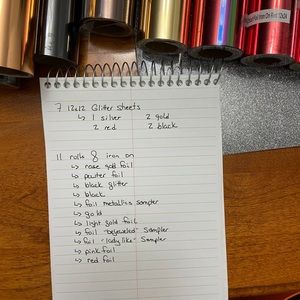 7 12x12 Glitter sheets
↳ 1 silver 2 gold
2 red 2 black
11 rolls of iron on
↳ rose gold foil
↳ pewter foil
↳ black glitter
↳ black
↳ foil metallics sampler
↳ gold
↳ light gold foil
↳ foil "bejeweled" Sampler
↳ foil "lady like" Sampler
↳ pink foil
↳ red foil
Iron On Foil 12x24